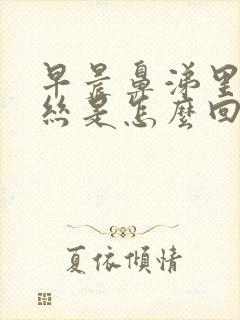 早晨鼻涕里
絲是怎麼回
夏依傾情